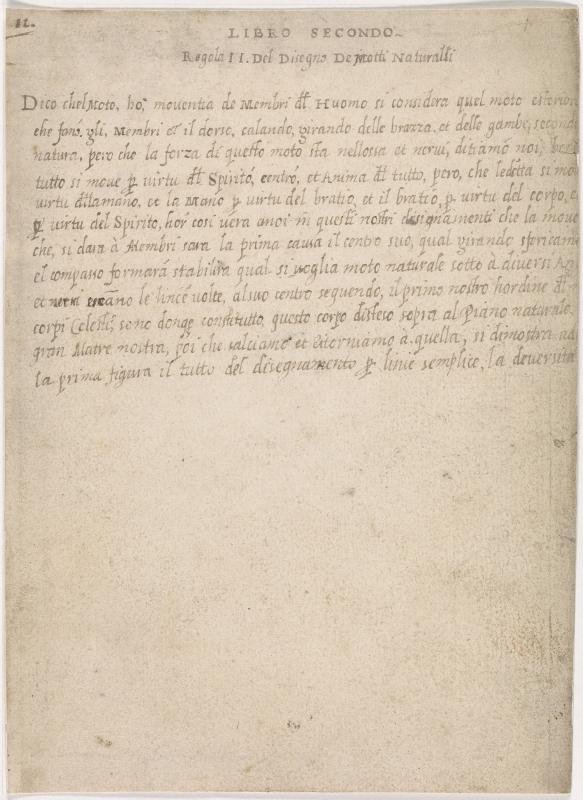 11.
LIBRO SECONDO
Regola II. Del Disegno De Motti Naturalli
Dico chel Moto, ho, moventia de Membri dll Huomo si considera quel moto esterior
che fano gli, Membri et il dorso, calando, girando delle brazza, et delle gambe, secondo
natura, pero che la forza di questo moto sta nellossa et nervi, ditiamo noi,
tutto si move p virtu dll Spirito, centro, et Anima dll tutto, pero, che ledetta si mov
virtu dllamano, et la Mano p virtu del bratio, et il bratio, p virtu del corpo,
p virtu del Spirito, hor cosi vera anoi in questi nostri disignamenti che la move
che, si dara à Membri sara la prima causa il centro suo, qual girando sfericam
el compasso formará stabilira qual si voglia moto naturale sotto à diversi
et le lince volte, al suo centro sequendo, il primo nostro hordine dll
corpi Celesti, sono donqe constitutto, questo corpo disteso sopra al Piano naturale
gran Matre nostra, poi che salciamo et etorniamo à quella, si dimostra
la prima figura il tutto del disegnamento p linie semplice, la deversita